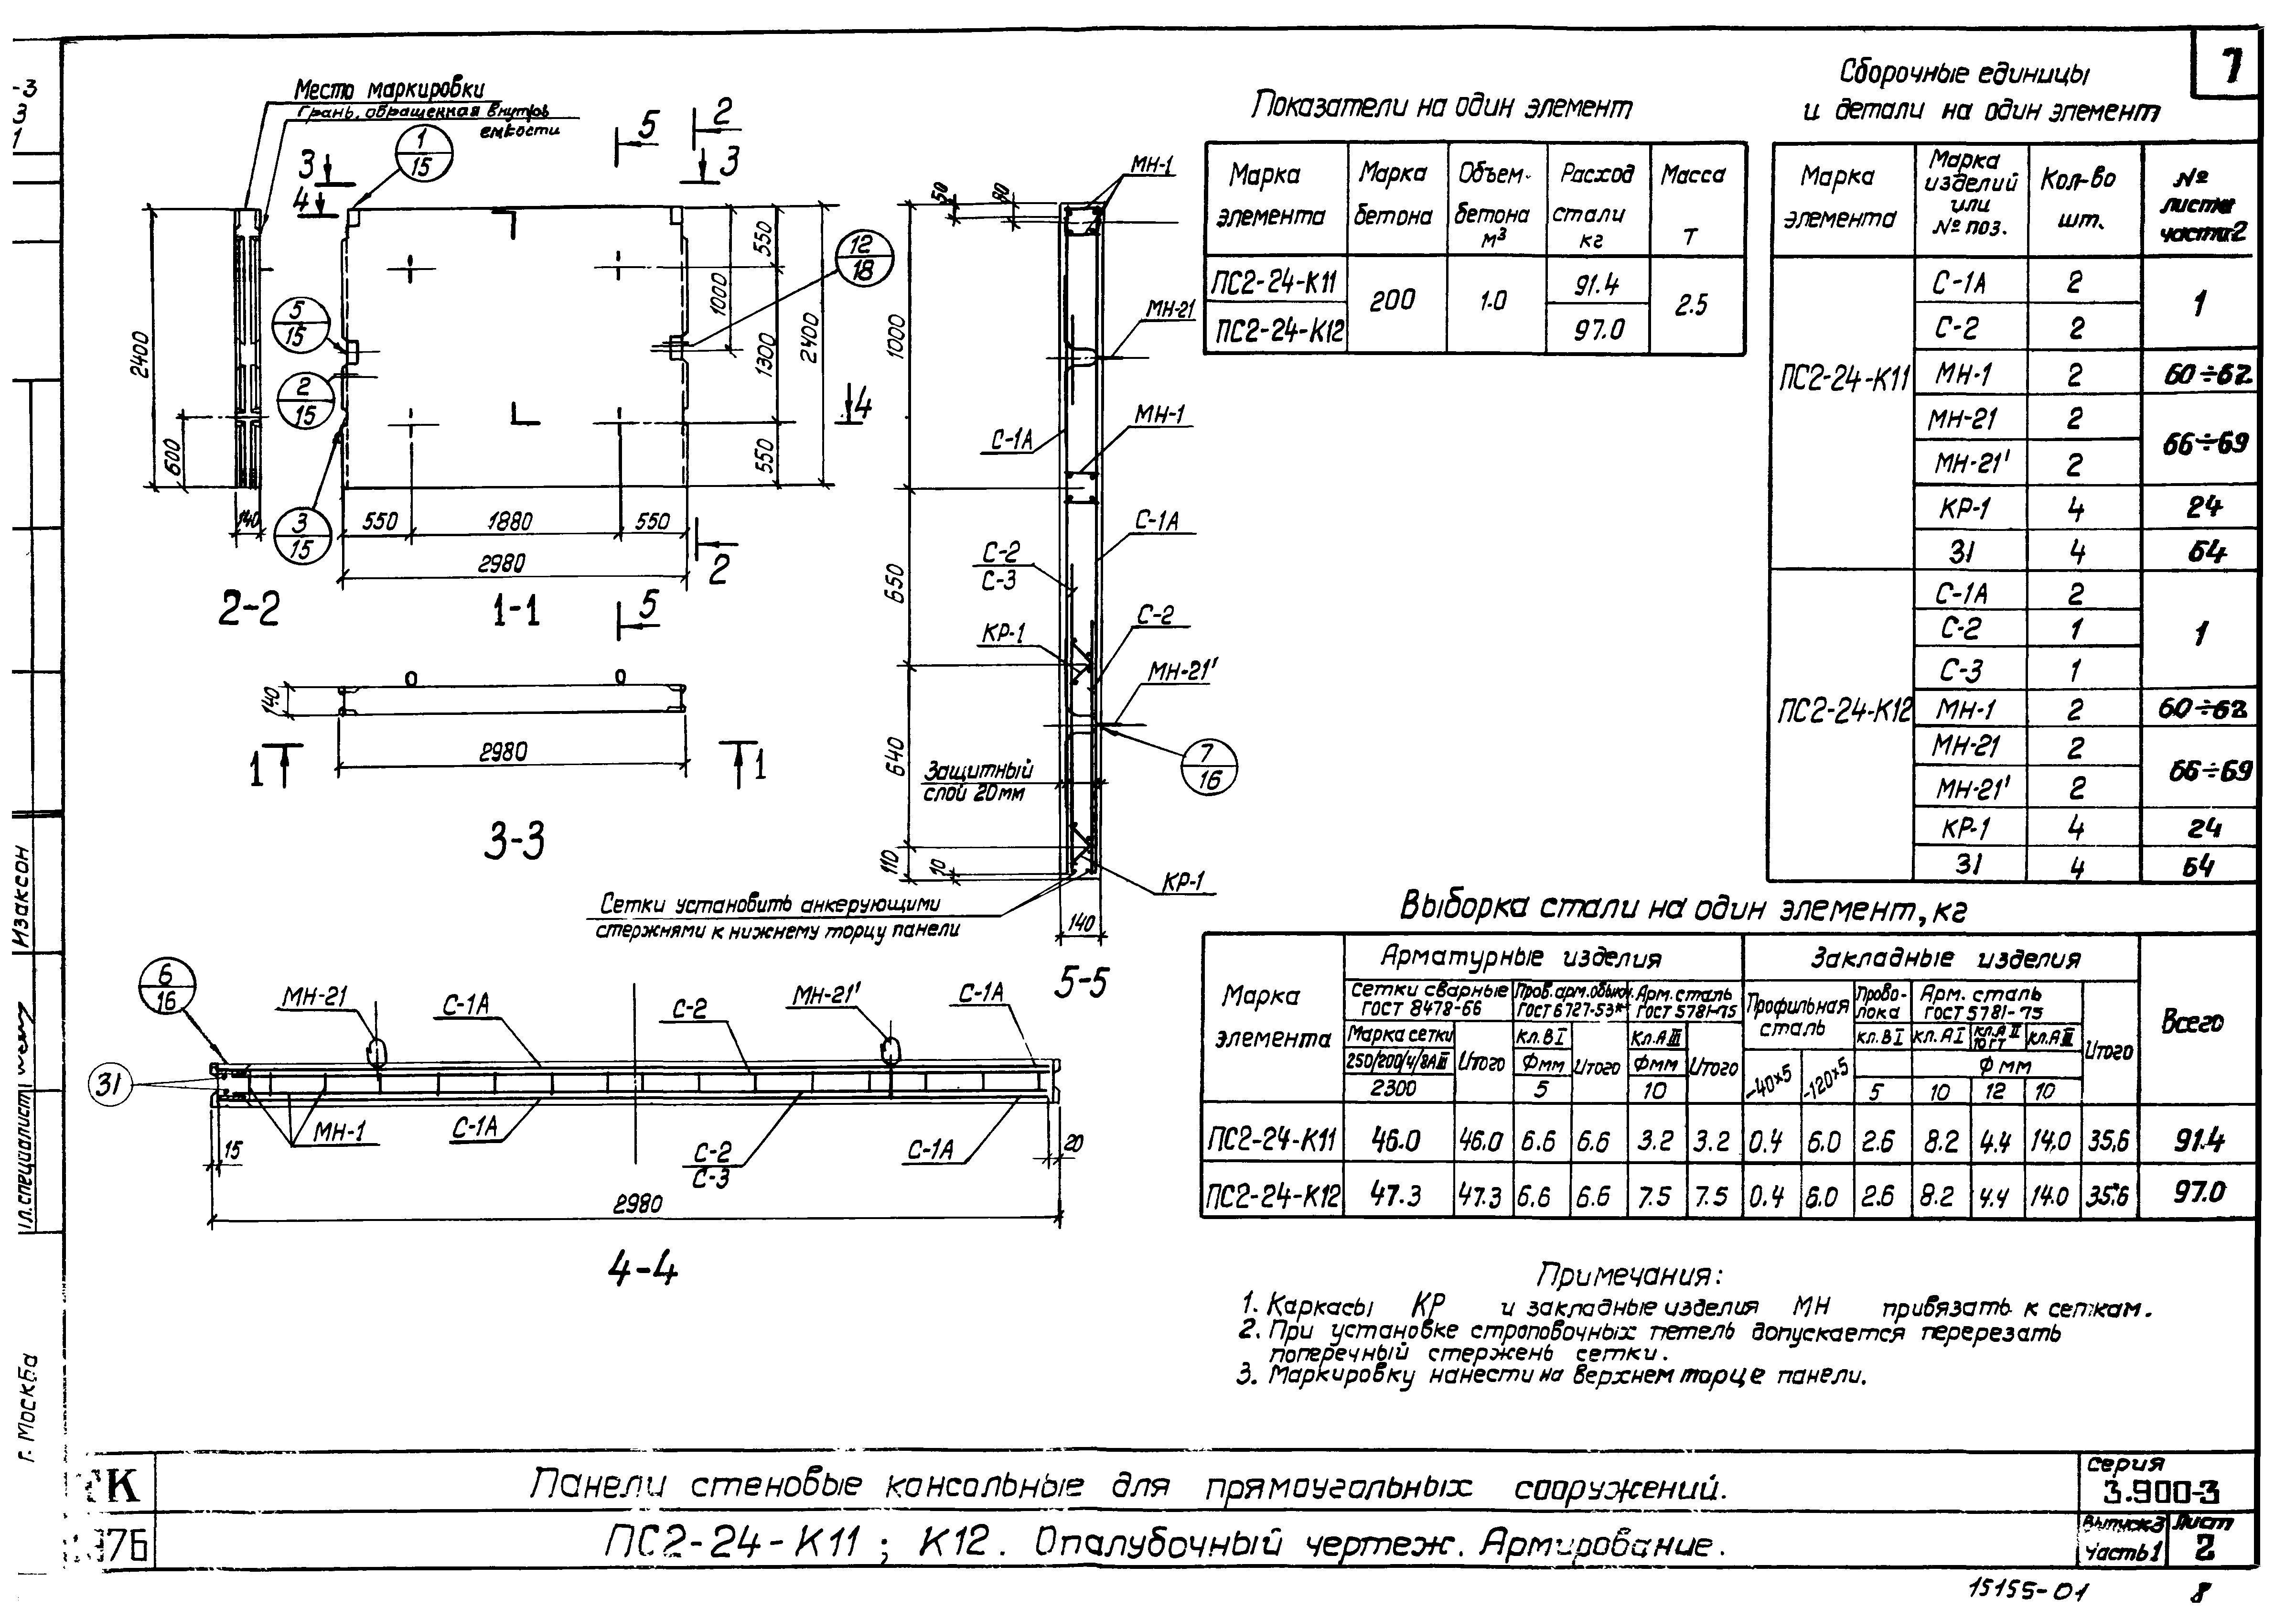 7
-3
3
1
Место маркировки
Грань, обращенная внутрь
емкости
1
15
3
4
5
2
3
12
18
5
15
2
15
3
15
4
2400
600
140
550
1000
1300
2400
550
550
1880
550
2980
2
2-2
1-1
5
140
2980
1
1
3-3
МН-1
50
80
1000
МН-21
С-1А
МН-1
С-1А
С-2
С-3
650
КР-1
С-2
МН-21'
640
7
16
Защитный
слой 20мм
110
10
КР-1
Сетки установить анкерующими
стержнями к нижнему торцу панели
140
5-5
6
16
МН-21
С-1А
С-2
МН-21'
С-1А
31
МН-1
С-1А
С-2
С-3
С-1А
15
20
2980
4-4
Показатели на один элемент
Марка элемента
Марка бетона
Объем бетона м³
Расход стали кг
Масса Т
ПС2-24-К11 200 1.0 91.4 2.5
ПС2-24-К12 97.0
Сборочные единицы
и детали на один элемент
Марка элемента
Марка изделий или № поз.
Кол-во шт.
№ листа части 2
ПС2-24-К11
С-1А 2 1
С-2 2
МН-1 2 60÷62
МН-21 2 66÷69
МН-21' 2
КР-1 4 24
31 4 64
ПС2-24-К12
С-1А 2 1
С-2 1
С-3 1
МН-1 2 60÷62
МН-21 2 66÷69
МН-21' 2
КР-1 4 24
31 4 64
Выборка стали на один элемент, кг
Марка элемента
Арматурные изделия
Закладные изделия
Всего
Сетки сварные ГОСТ 8478-66
Пров. арм. обыкн. ГОСТ 6727-53*
Арм. сталь ГОСТ 5781-75
Профильная сталь
Проволока
Арм. сталь ГОСТ 5781-75
Итого
Марка сетки
Итого
Кл. В I
Итого
Кл. А III
Итого
кл. В I
кл. А I
кл. А II 10 ГТ
кл. А III
250/200/4/8АIII
Ф мм
Ф мм
Ф мм
2300 5 10 -40×5 -120×5 5 10 12 10
ПС2-24-К11 46.0 46.0 6.6 6.6 3.2 3.2 0.4 6.0 2.6 8.2 4.4 14,0 35,6 91.4
ПС2-24-К12 47.3 47.3 6.6 6.6 7.5 7.5 0.4 6.0 2.6 8.2 4.4 14.0 35.6 97.0
Примечания:
1. Каркасы КР и закладные изделия МН привязать к сеткам.
2. При установке строповочных петель допускается перерезать
поперечный стержень сетки.
3. Маркировку нанести на верхнем торце панели.
Изаксон
Гл. специалист
г. Москва
К
76
Панели стеновые консольные для прямоугольных сооружений.
ПС2-24-К11; К12. Опалубочный чертеж. Армирование.
серия
3.900-3
Выпуск 3
Часть 1
Лист
2
15155-01
8